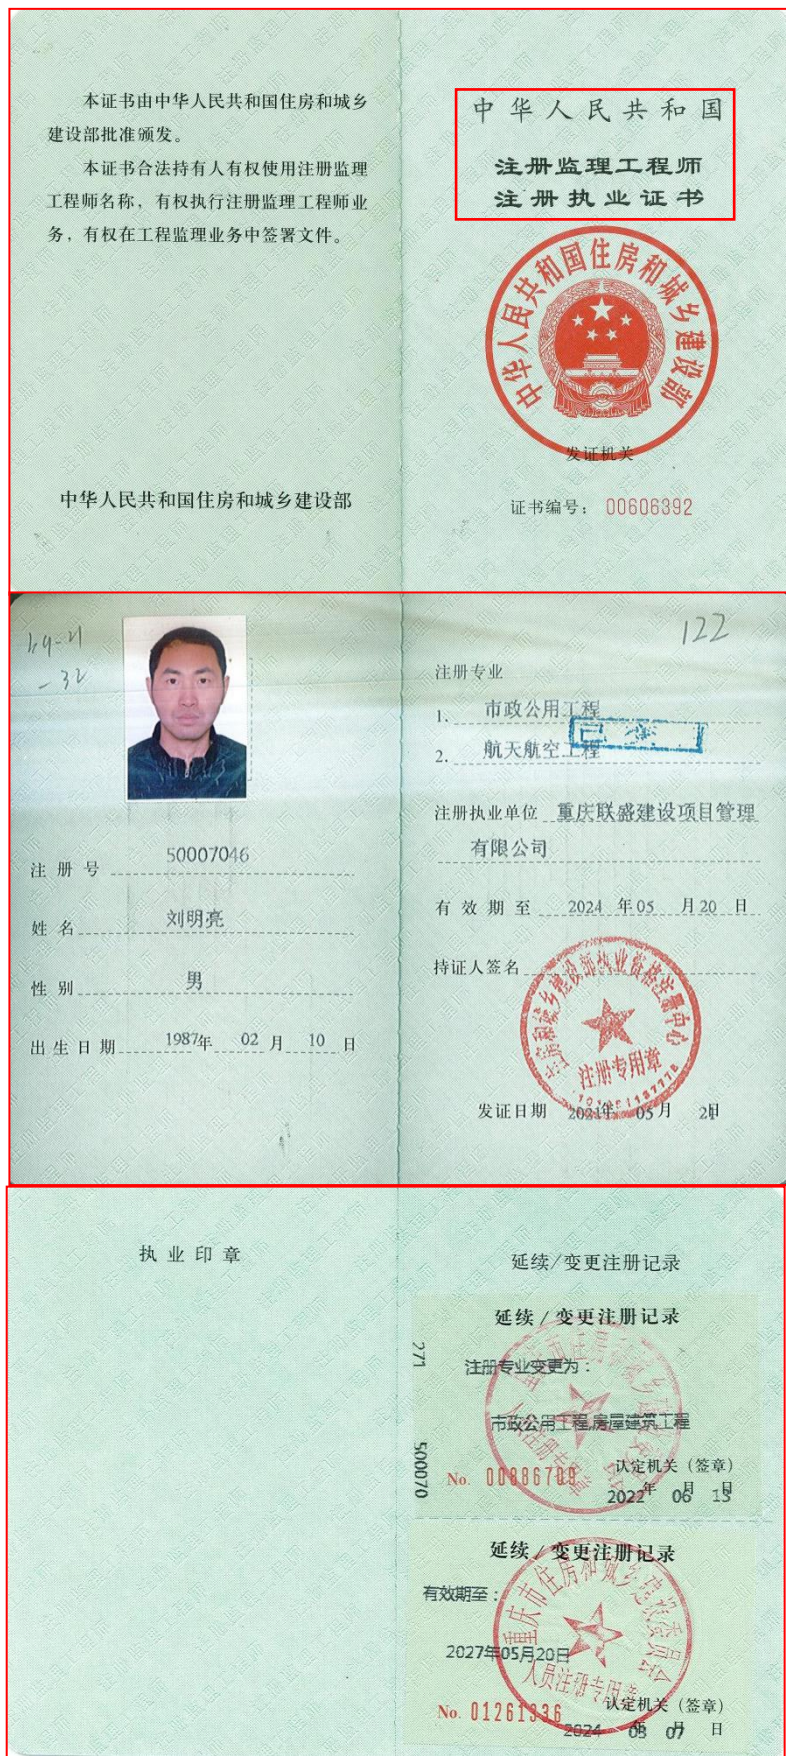 本证书由中华人民共和国住房和城乡
建设部批准颁发。
本证书合法持有人有权使用注册监理
工程师名称，有权执行注册监理工程师业
务，有权在工程监理业务中签署文件。
中华人民共和国住房和城乡建设部
中华人民共和国
注册监理工程师
注册执业证书
中华人民共和国住房和城乡建设部
发证机关
证书编号： 00606392
-32
注册号 50007046
姓名 刘明亮
性别 男
出生日期 1987年 02月 10日
122
注册专业
1. 市政公用工程
2. 航天航空工程
已变
注册执业单位 重庆联盛建设项目管理
有限公司
有效期至 2024年05月20日
持证人签名
住房和城乡建设部执业资格注册中心
注册专用章
发证日期 2021年 05月 21日
执业印章
延续/变更注册记录
延续/变更注册记录
271
注册专业变更为：
市政公用工程,房屋建筑工程
500070
No. 00886709
认定机关（签章）
2022年 06月 13日
延续/变更注册记录
有效期至：
2027年05月20日
重庆市住房和城乡建设委员会
人员注册专用章
No. 01261336
认定机关（签章）
2024年 03月 07日